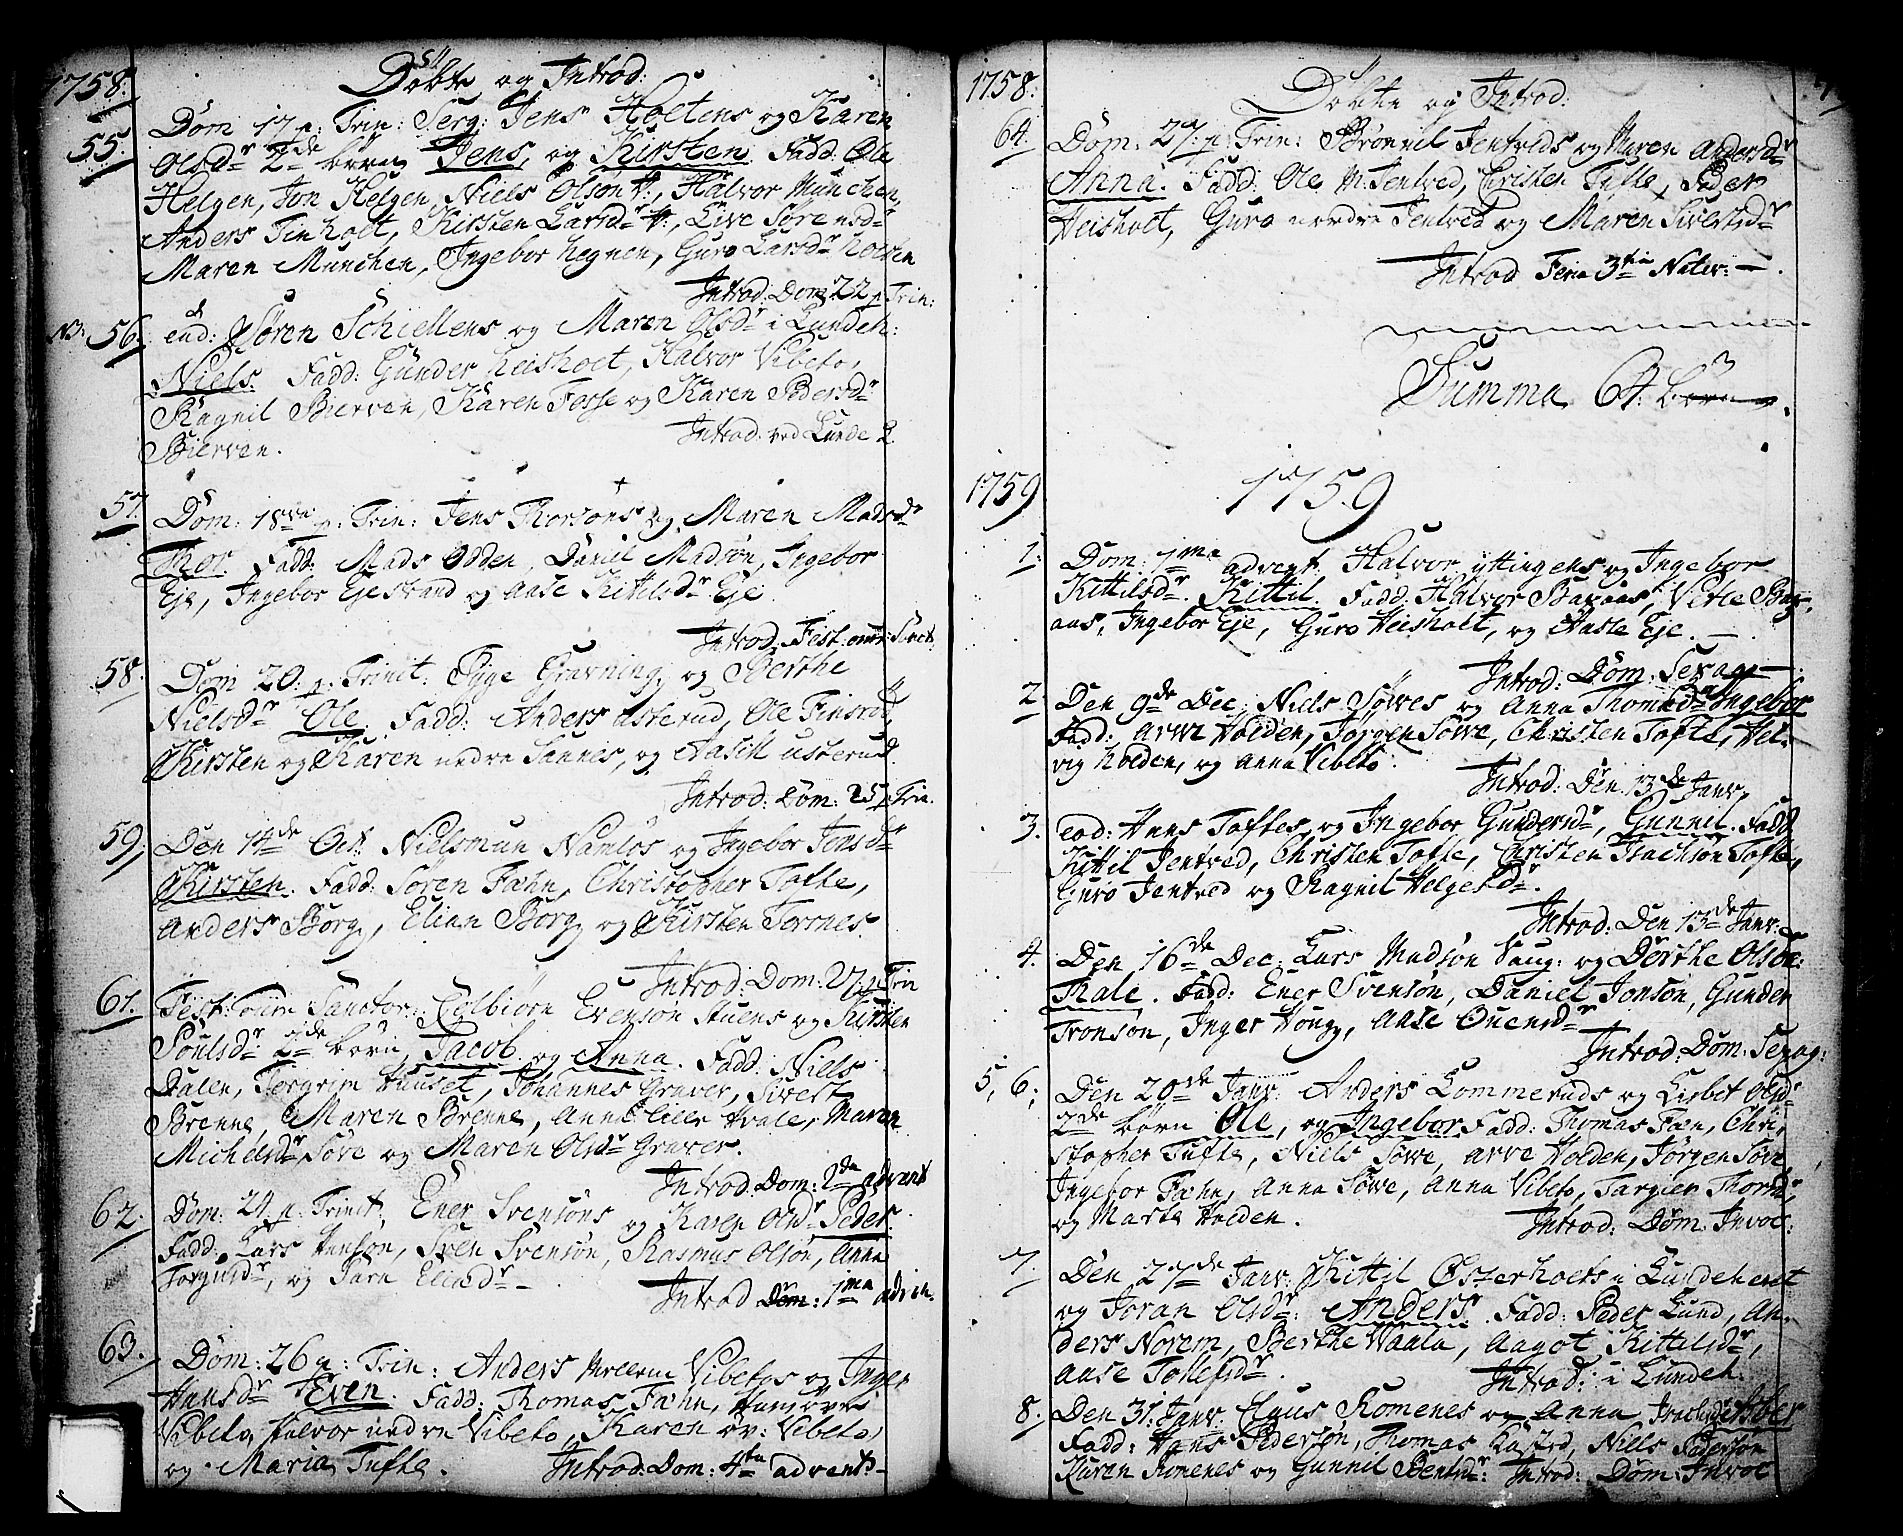 1758.
Døbte og Introd:
55. Dom 17 p: Trin: Serg: Jens Holtens og Karen
Olsdr 2de børn Jens, og Kirsten. Fadd: Ole
Helgen, Jon Helgen, Niels Olson, Halvor Munchen,
Anders Tinholt, Kirsten Larsdr, Live Sørensdr
Maren Munchen, Ingebor hegnen, Guro Larsdr holten
Introd: Dom 22 p Trin:
NB: 56. eod: Søren Schiellens og Maren Olsdr i Lundeh:
Niels. Fadd: Gunder heisholt, Halvor Vibeto,
Ragnil Bierven, Karen Fosse og Karen Pedersdr
Bierven.
Introd: ved Lunde K.
57. Dom: 18 p: Trin: Jens Thorsons og Maren Madsdr
Thor. Fadd: Mads Odden, Daniel Madson, Ingebor
Eje, Ingebor Ejestrand og Aase Kittilsdr Eje.
Introd: Fest. omn: Sanct:
58. Dom 20. p: Trinit: Tyge Gravning, og Berthe
Nielsdr Ole. Fadd: Anders usterud, Ole Finsrud,
Kirsten og Karen nedre Sannes, og Aasill usterud
Introd: Dom: 25 p Trin.
59, Den 14de Oct: Nielsmun Namløs og Ingebor Jensdr
Kirsten. Fadd: Søren Fæhn, Christopher Tofte,
Anders Borg, Elian Borg og Kirsten Tersnes.
Introd: Dom: 27. p: Trin
61. Fest: Omn Sanctor: Eylbiørn Evenson Stuens og Kirsten
Poulsdr 2de børn, Jacob. og Anna. Fadd: Niels
Dalen, Torgrim Huuset, Johannes Graver, Sivert
Brenne, Maren Brenne, Anne lille Hvale, Maren
Michelsdr Sove og Maren Olsdr Graver.
Introd: Dom: 2da advent
62. Dom: 24 p. Trinit, Ener Svensons og Karen Olsdr Peder.
Fadd: Lars Hanson, Sven Svenson, Rasmus Olson, Anna
Torgusdr, og Tarn Eliasdr —
Introd Dom: 1ma adven.
63. Dom: 26 p: Trin: Anders Mellem Vibetos og Inger
Hansdr Even. Fadd: Thomas Fæhn, Hans øvre
Vibeto, Halvor nedre Vibeto, Karen øv: Vibeto,
og Maria Tufte.
Introd: Dom: 4ta advent —
1758.
Døbte og Introd:
64. Dom: 27. p: Trin: Brønnil Jentveds og Maren Andersdr
Anna. Fadd: Ole M: Jentved, Christen Tufte, Peder
Heisholt, Guro nordre Jentved og Maren Sivertsdr
Introd Feria 3tia Nativ: —
Summa 64: børn.
1759
1759
1. Dom: 1ma advent. Halvor yttingens og Ingebor
Kittilsdr. Kittil. Fadd: Halvor Baxaas, Vetle Bax-
aas, Ingebor Eje, Guro Heisholt, og Aasle Eje. —
Introd: Dom. Sexag —
2. Den 9de Dec: Niels Søwes og Anna Thomasdr Ingebor
Fadd: Arve Holden, Jørgen Søwe, Christen Tofte, Hel-
vig holden, og Anna Vibeto.
Introd: Den 13de Janv,
3. eod: Hans Toftes og Ingebor Gundersdr, Gunnil. Fadd
Kittil Jentved, Christen Tofte, Christen Isachson Tofte,
Guro Jentved og Ragnil Helgesdr.
Introd: Den 13de Janv:
4. Den 16de Dec: Lars Madson Haug: og Dorthe Olsdr:
Kale. Fadd: Ener Svenson, Daniel Jonson, Gunder
Tronson, Inger Houg, Aase Ouensdr
Introd: Dom: Sexag:
5, 6; Den 20de Janv: Anders Lommeruds og Lisbet Olsdr
2de børn Ole, og Ingebor Fadd: Thomas Fæn, Chri-
stopher Tufte, Niels Søwe, Arve Holden, Jørgen Søve
Ingebor Fæhn, Anna Søwe, Anna Vibeto, Targier Thorsdr,
og Marte Holden.
Introd: Dom: Invoc:
7. Den 27de Janv: Kittil Østerholts i Lundeheret
og Joran Olsdr: Anders. Fadd: Peder Lund, An-
ders Norem, Berthe Waala, Aagot Kittilsdr,
Aase Tollefsdr.
Introd: i Lundeh.
8. Den 31: Janv: Claus Romenes og Anna Isachsdr Asber
Fadd: Hans Pederson, Thomas Kasted, Niels Pederson
Karen Rimenes og Gunnil Bentsdr: Introd: Dom: Invoc